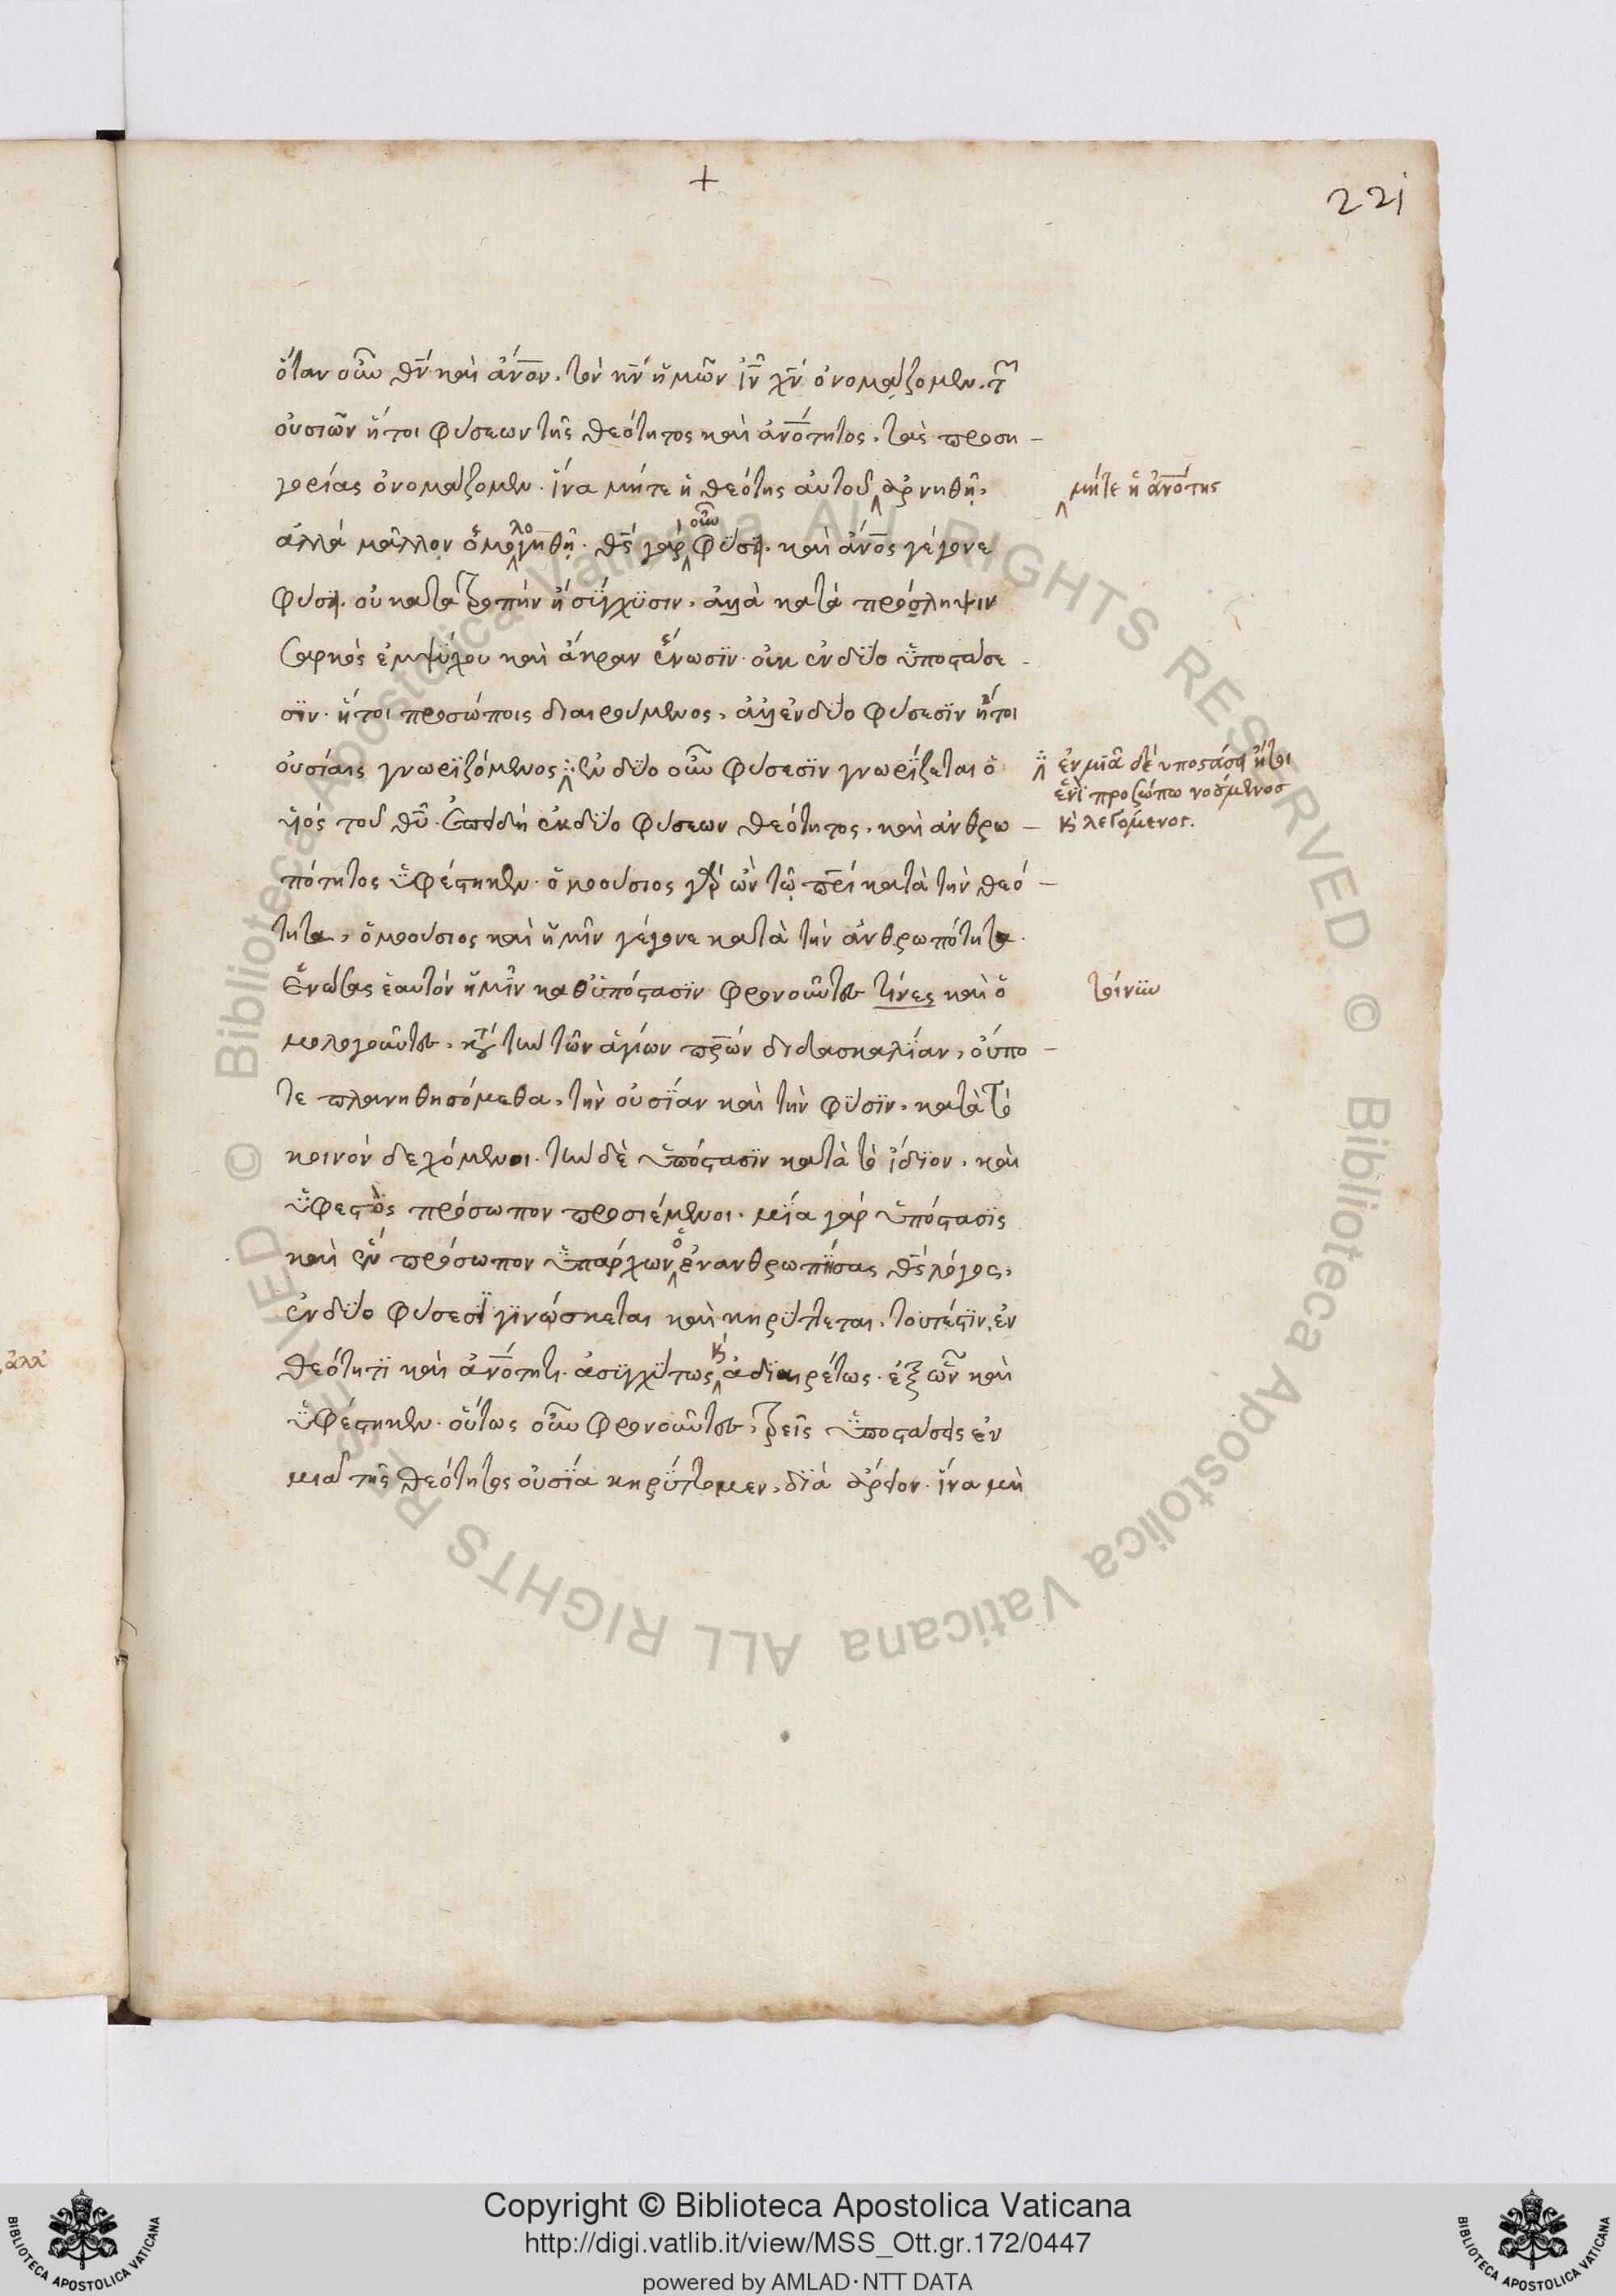 +
221
ὅταν οὖν θν̄ καὶ ἄνο̄ν. τὸν κν̄ ἡμῶν ιν̄ χν̄ ὀνομάζομεν. τῶν
οὐσιῶν ἤτοι φύσεων τῆς θεότητος καὶ ἀνο̄τητος, τὰς προση-
γορίας ὀνομάζομεν. ἵνα μήτε ἡ θεότης αὐτοῦ ‸ ἀρνηθῇ,
‸ μήτε ἡ ἀνο̄της
ἀλλὰ μᾶλλον ὁμολογηθῇ. θς̄ γὰρ οὖν φύσει. καὶ ἄνο̄ς γέγονε
φύσει. οὐ κατὰ τροπὴν ἢ σύγχϋσιν, ἀλλὰ κατὰ πρόσληψιν
σαρκὸς ἐμψύχου καὶ ἄκραν ἕνωσϊν. οὐκ ἐν δύο ὑποστάσε-
σϊν. ἤτοι προσώποις διαιρούμενος, ἀλλ' ἐν δύο φύσεσϊν ἤτοι
οὐσίαις γνωρϊζόμενος ‸ ἐν δύο οὖν φύσεσϊν γνωρίζεται ὁ
‸ ἐν μιᾶ δὲ ὑποστάσει ἤτοι
ἑνὶ προσώπω νοούμενος
κ̀ λεγόμενος.
υἱός τοῦ θῡ. ἐπειδὴ ἐκ δύο φύσεων θεότητος, καὶ ἀνθρω-
πότητος ὑφέστηκεν. ὁμοούσιος γὰρ ὢν τῷ πρ̄ὶ κατὰ τὴν θεό-
τητα, ὁμοούσιος καὶ ἡμῖν γέγονε κατὰ τὴν ἀνθρωπότητα.
Ἑνώσας ἑαυτὸν ἡμῖν καθ' ὑπόστασϊν φρονοῦντες τίνες καὶ ὁ
τοίνυν
μολογοῦντες, κατὰ τὴν τῶν ἁγίων πρ̄ων διδασκαλίαν, οὔπο-
τε πλανηθησόμεθα, τὴν οὐσίαν καὶ τὴν φύσϊν, κατὰ τὸ
κοινὸν δεχόμενοι. τὴν δὲ ὑπόστασϊν κατὰ τὸ ἴδϊον, καὶ
ὑφεστὸς πρόσωπον προσιέμενοι. μία γὰρ ὑπόστασϊς
καὶ ἓν πρόσωπον ὑπάρχων ὁ ἐνανθρωπήσας θς̄ λόγος,
ἐν δύο φύσεσϊ γϊνώσκεται καὶ κηρύττεται, τουτέστϊν, ἐν
θεότητϊ καὶ ἀνο̄τητι. ἀσυγχύτως κ̀ ἀδϊαιρέτως. ἐξ ὧν καὶ
ὑφέστηκεν. οὕτως οὖν φρονοῦντες, τρεῖς ὑποστάσεις ἐν
μιᾶ τῆς θεότητος οὐσία κηρύττομεν, δϊὰ ἄρειον. ἵνα μὴ
ἀλλ'
Copyright © Biblioteca Apostolica Vaticana
http://digi.vatlib.it/view/MSS_Ott.gr.172/0447
powered by AMLAD·NTT DATA
BIBLIOTECA APOSTOLICA VATICANA
BIBLIOTECA APOSTOLICA VATICANA
© Biblioteca Apostolica Vaticana ALL RIGHTS RESERVED © Biblioteca Apostolica Vaticana ALL RIGHTS RESERVED